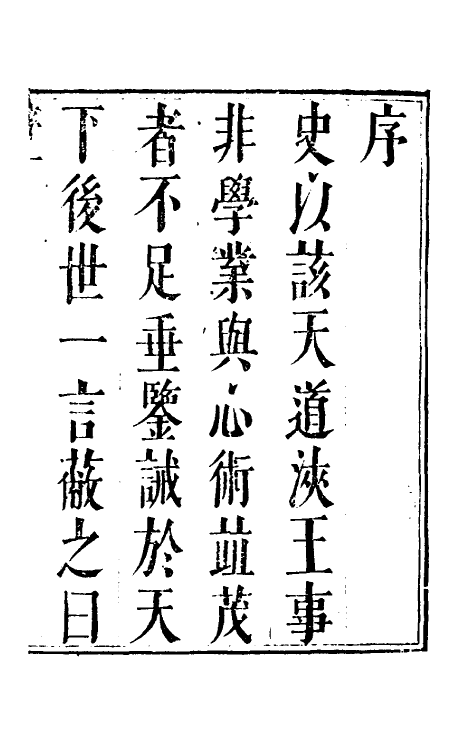 序
史以該天道浹王事
非學業與心術並茂
者不足垂鑒誡於天
下後世一言蔽之曰